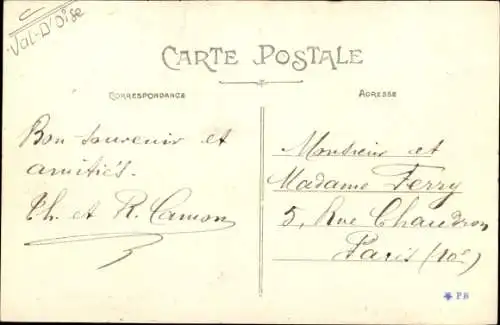 C
Val-D'Oise
CARTE POSTALE
CORRESPONDANCE
ADRESSE
Bon souvenir et
amitiés.
Th. et R. Camon
Monsieur et
Madame Ferry
5, Rue Chaudron
Paris (10e)
PB